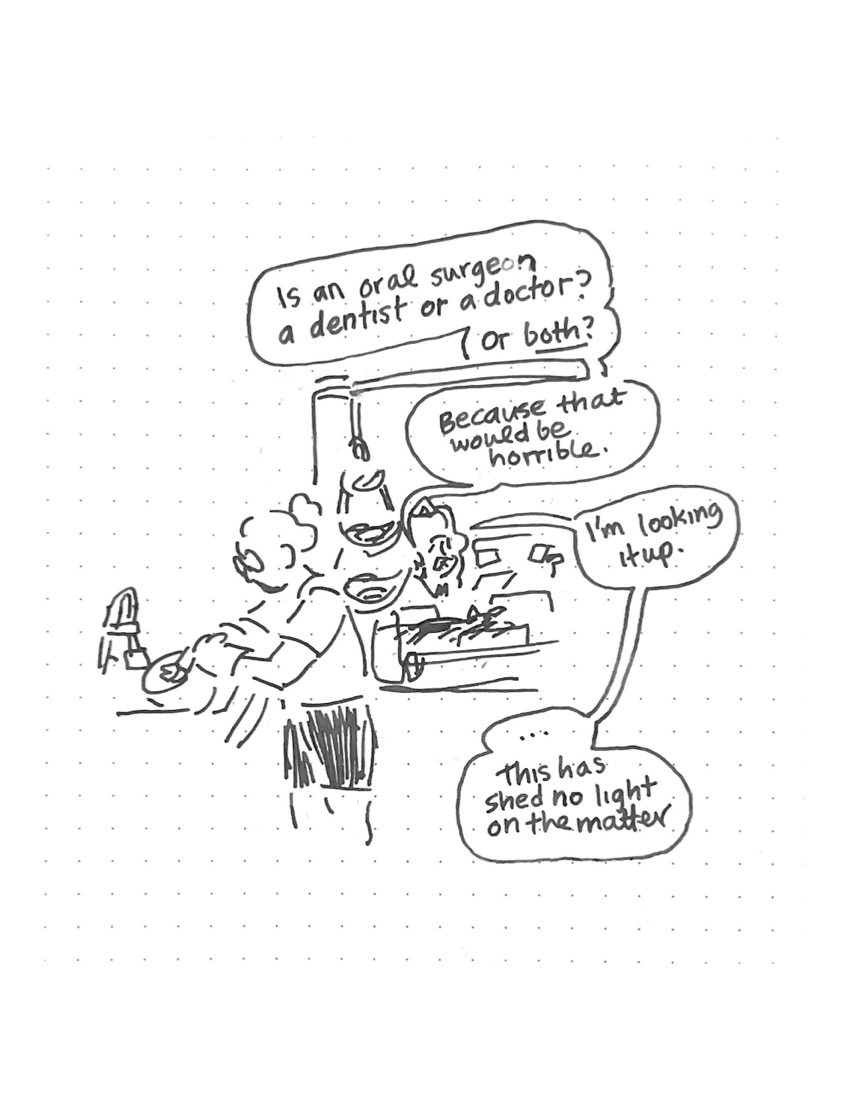 Is an oral surgeon
a dentist or a doctor?
Or both?
Because that
would be
horrible.
I'm looking
it up.
...
This has
shed no light
on the matter